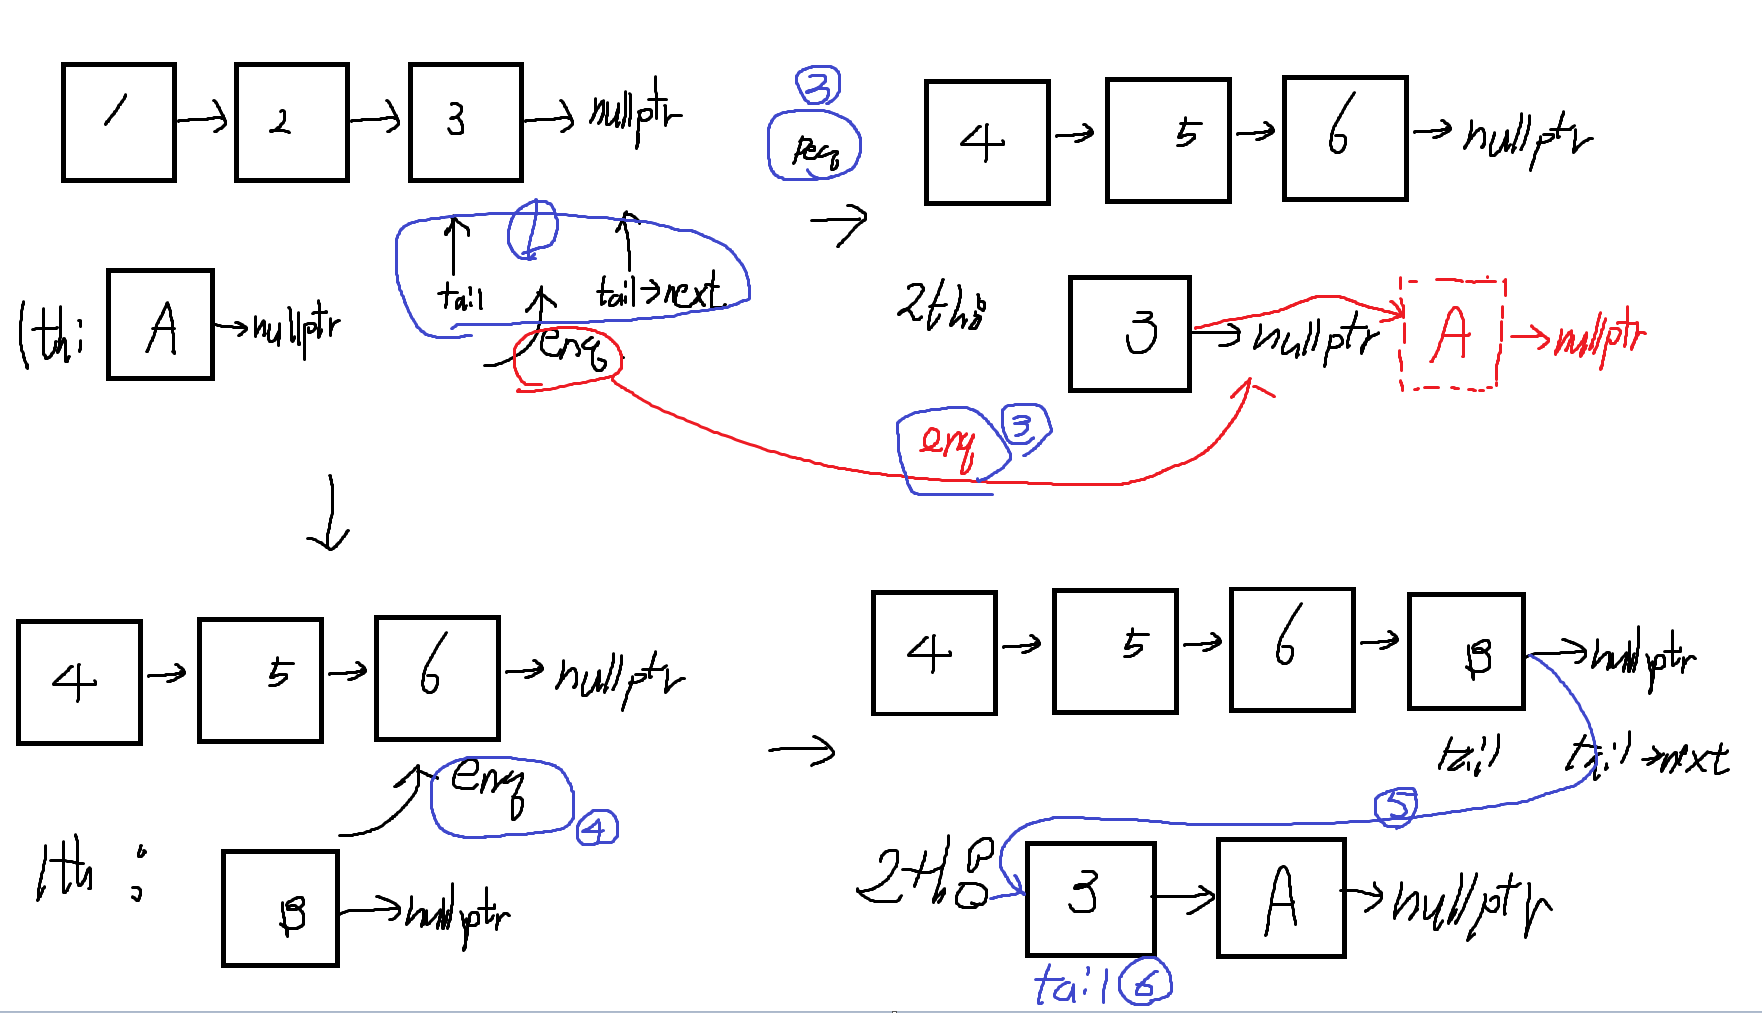 1 2 3 nullptr
1th: A nullptr
1
tail tail→next
enq
3
Deq
4 5 6 nullptr
2th: 3 nullptr A nullptr
enq 3
4 5 6 nullptr
enq 4
1th : B nullptr
4 5 6 B nullptr
tail tail→next
5
2th: 3 A nullptr
tail 6